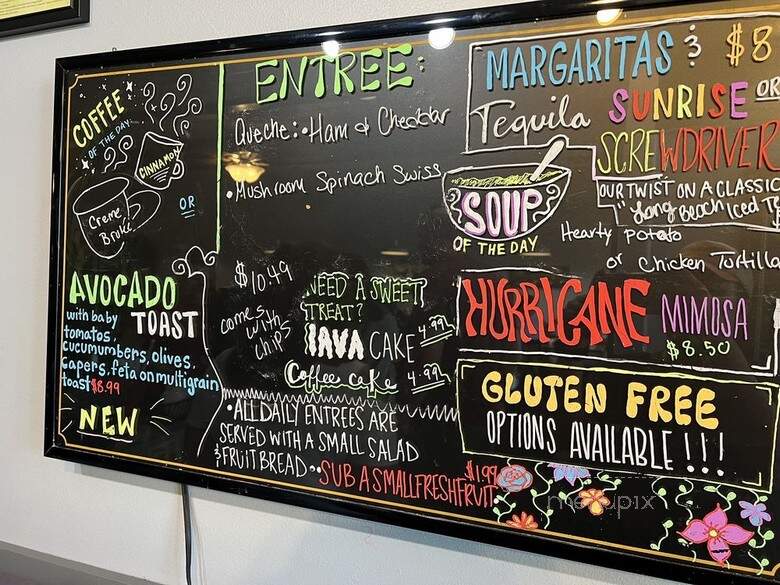 COFFEE
OF THE DAY
CINNAMON
OR
Creme
Brulé
AVOCADO
with baby TOAST
tomatos,
cucumumbers, olives,
capers, feta on multigrain
toast $8.99
NEW
ENTREE:
Queche: • Ham & Cheddar
• Mushroom Spinach Swiss
$10.49
comes
with
chips
NEED A SWEET
TREAT?
JAVA CAKE 4.99
Coffee cake 4.99
• ALL DAILY ENTREES ARE
SERVED WITH A SMALL SALAD
& FRUIT BREAD •• SUB A SMALL FRESH FRUIT $1.99
MARGARITAS & $8
Tequila SUNRISE OR
SCREWDRIVER
OUR TWIST ON A CLASSIC
"Long Beach Iced
SOUP
OF THE DAY
Hearty potato
or Chicken Tortilla
HURRICANE MIMOSA
$8.50
GLUTEN FREE
OPTIONS AVAILABLE!!!
menupix